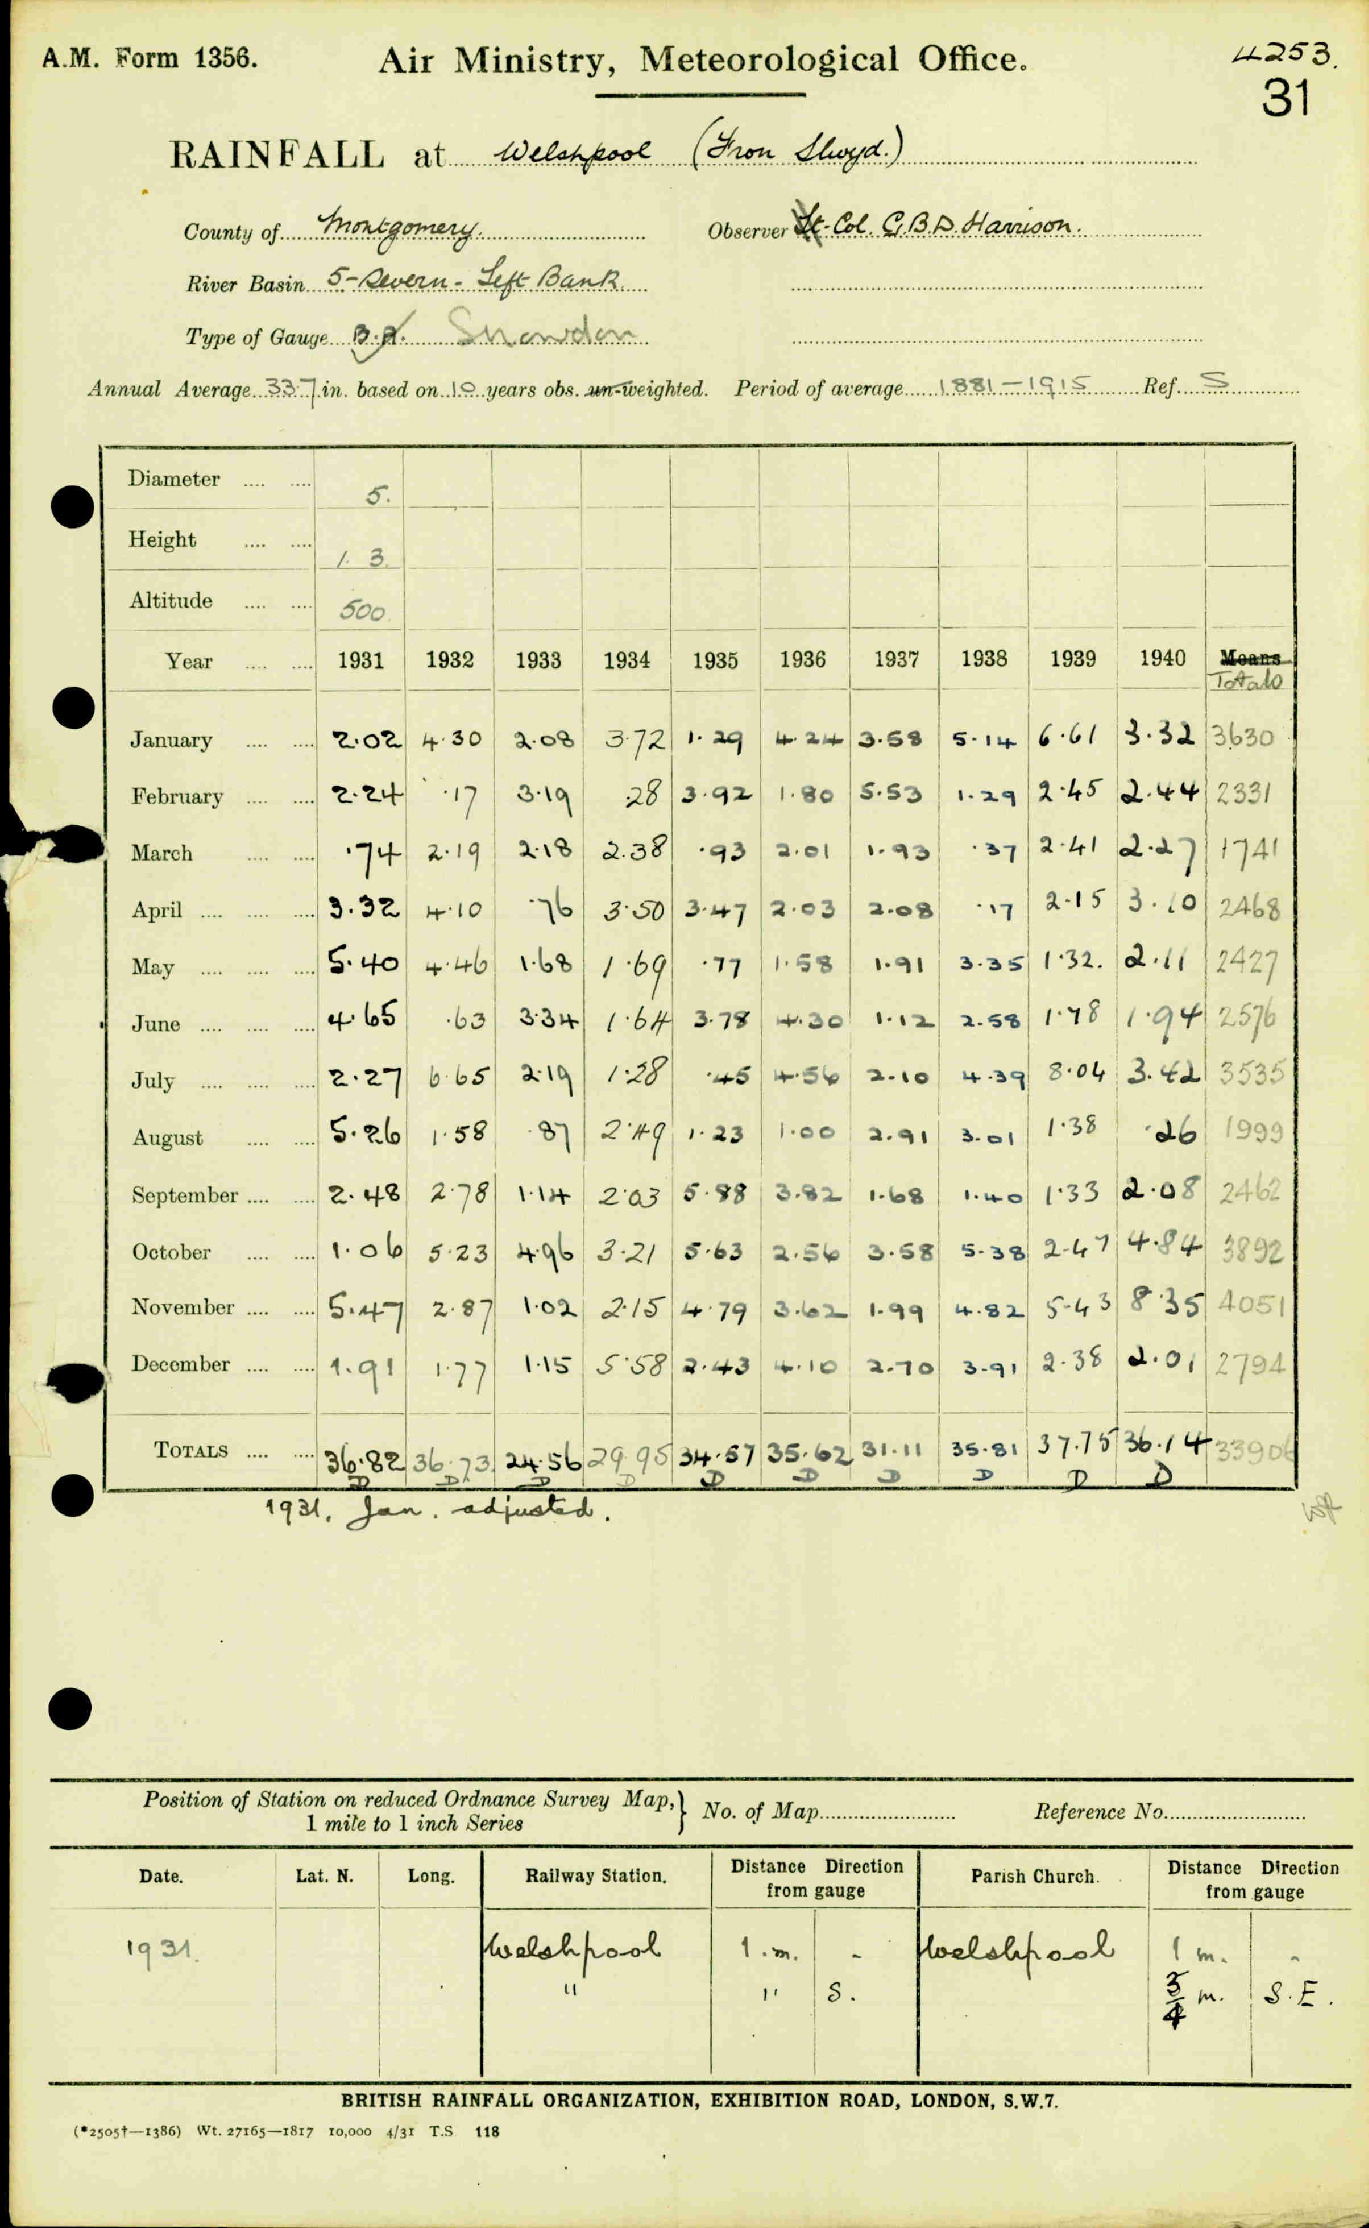 A.M. Form 1356.
Air Ministry, Meteorological Office.
4253.
31
RAINFALL at Welshpool (Fron Llwyd.)
County of Montgomery. Observer Lt-Col. G.B.D. Harrison.
River Basin 5-Severn - Left Bank
Type of Gauge B.R. Snowdon
Annual Average 33.7 in. based on 10 years obs. un-weighted. Period of average 1881-1915 Ref. S
Diameter .... .... 5.
Height .... .... 1. 3.
Altitude .... .... 500
Year .... .... 1931 1932 1933 1934 1935 1936 1937 1938 1939 1940 Means
Totals
January .... .... 2.02 4.30 2.08 3.72 1.29 4.24 3.58 5.14 6.61 3.32 3630
February .... .... 2.24 .17 3.19 .28 3.92 1.80 5.53 1.29 2.45 2.44 2331
March .... .... .74 2.19 2.18 2.38 .93 2.01 1.93 .37 2.41 2.27 1741
April .... .... .... 3.32 4.10 .76 3.50 3.47 2.03 2.08 .17 2.15 3.10 2468
May .... .... .... 5.40 4.46 1.68 1.69 .77 1.58 1.91 3.35 1.32. 2.11 2427
June .... .... .... 4.65 .63 3.34 1.64 3.78 4.30 1.12 2.58 1.78 1.94 2576
July .... .... .... 2.27 6.65 2.19 1.28 .45 4.56 2.10 4.39 8.04 3.42 3535
August .... .... 5.26 1.58 .87 2.49 1.23 1.00 2.91 3.01 1.38 .26 1999
September .... .... 2.48 2.78 1.14 2.03 5.88 3.82 1.68 1.40 1.33 2.08 2462
October .... .... 1.06 5.23 4.96 3.21 5.63 2.56 3.58 5.38 2.47 4.84 3892
November .... .... 5.47 2.87 1.02 2.15 4.79 3.62 1.99 4.82 5.43 8.35 4051
December .... .... 1.91 1.77 1.15 5.58 2.43 4.10 2.70 3.91 2.38 2.01 2794
TOTALS .... .... 36.82 36.73 24.56 29.95 34.57 35.62 31.11 35.81 37.75 36.14 33906
D D D D D D D D D D
1931. Jan. adjusted.
Position of Station on reduced Ordnance Survey Map, 1 mile to 1 inch Series } No. of Map Reference No.
Date. Lat. N. Long. Railway Station. Distance Direction from gauge Parish Church. Distance Direction from gauge
1931. Welshpool 1.m. - Welshpool 1 m. -
" " S. 3/4 m. S.E.
BRITISH RAINFALL ORGANIZATION, EXHIBITION ROAD, LONDON, S.W.7.
(*2505†—1386) Wt. 27165—1817 10,000 4/31 T.S. 118